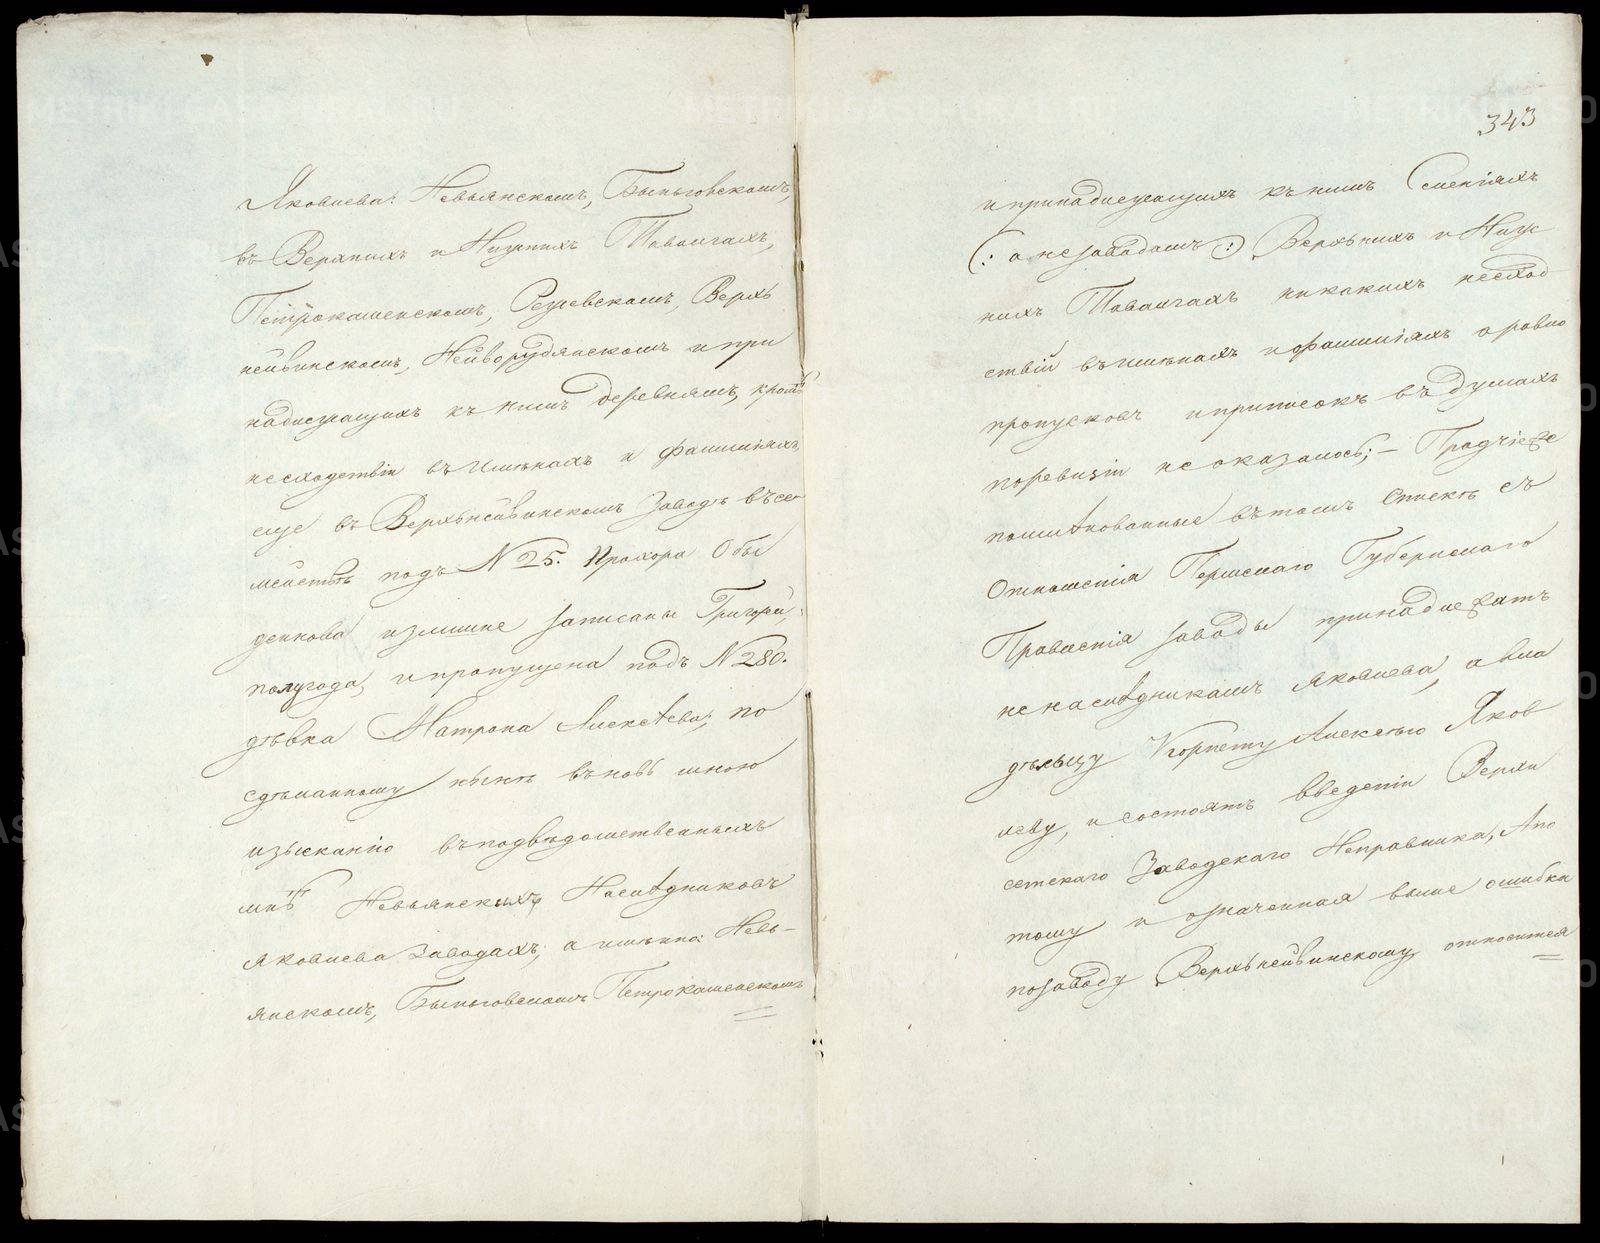 Яковлева: Невьянскомъ, Быньговскомъ,
въ Верхнихъ и Нижнихъ Таволгахъ,
Петрокаменскомъ, Режевскомъ, Верхъ
нейвинскомъ, Нейворудянскомъ и при
надлежащихъ къ нимъ деревнямъ, кромѣ
несходствiи въ имѣнахъ и фамилiяхъ,
еще въ Верхънейвинскомъ заводѣ въ се
мействѣ подъ N 25. Прохора Обы
денкова излишне записаны Григорей,
полугода, и пропущена подъ N 280.
дѣвка Матрона Алексѣева; по
сдѣланному нынѣ вновь мною
изысканiю въ подвѣдомственныхъ
мнѣ Невьянскихъ Наслѣдниковъ
Яковлева Заводахъ, а имѣнно: Невь-
янскомъ, Быньговскомъ Петрокаменскомъ
343
и принадлежащихъ къ нимъ Селенiяхъ
(: а не заводамъ :) Верхънихъ и Ниж
нихъ Таволгахъ никакихъ несход
ствiй въ имѣнахъ и фамилiяхъ а равно
пропусковъ и приписокъ въ душахъ
по ревизiи не оказалось; – Протчiе же
поимѣнованные въ томъ Спискѣ съ
Отношенiя Пермскаго Губернскаго
Правленiя заводы принадлежатъ
не наслѣдникамъ Яковлева, а вла
дѣльцу Корнету Алексѣю Яков
леву, и состоятъ введенiи Верхи
сетскаго Заводскаго Исправника, А по
тому и означенная выше ошибка
по заводу Верхънейвинскому относится
METRIKI.GASO-URAL.RU